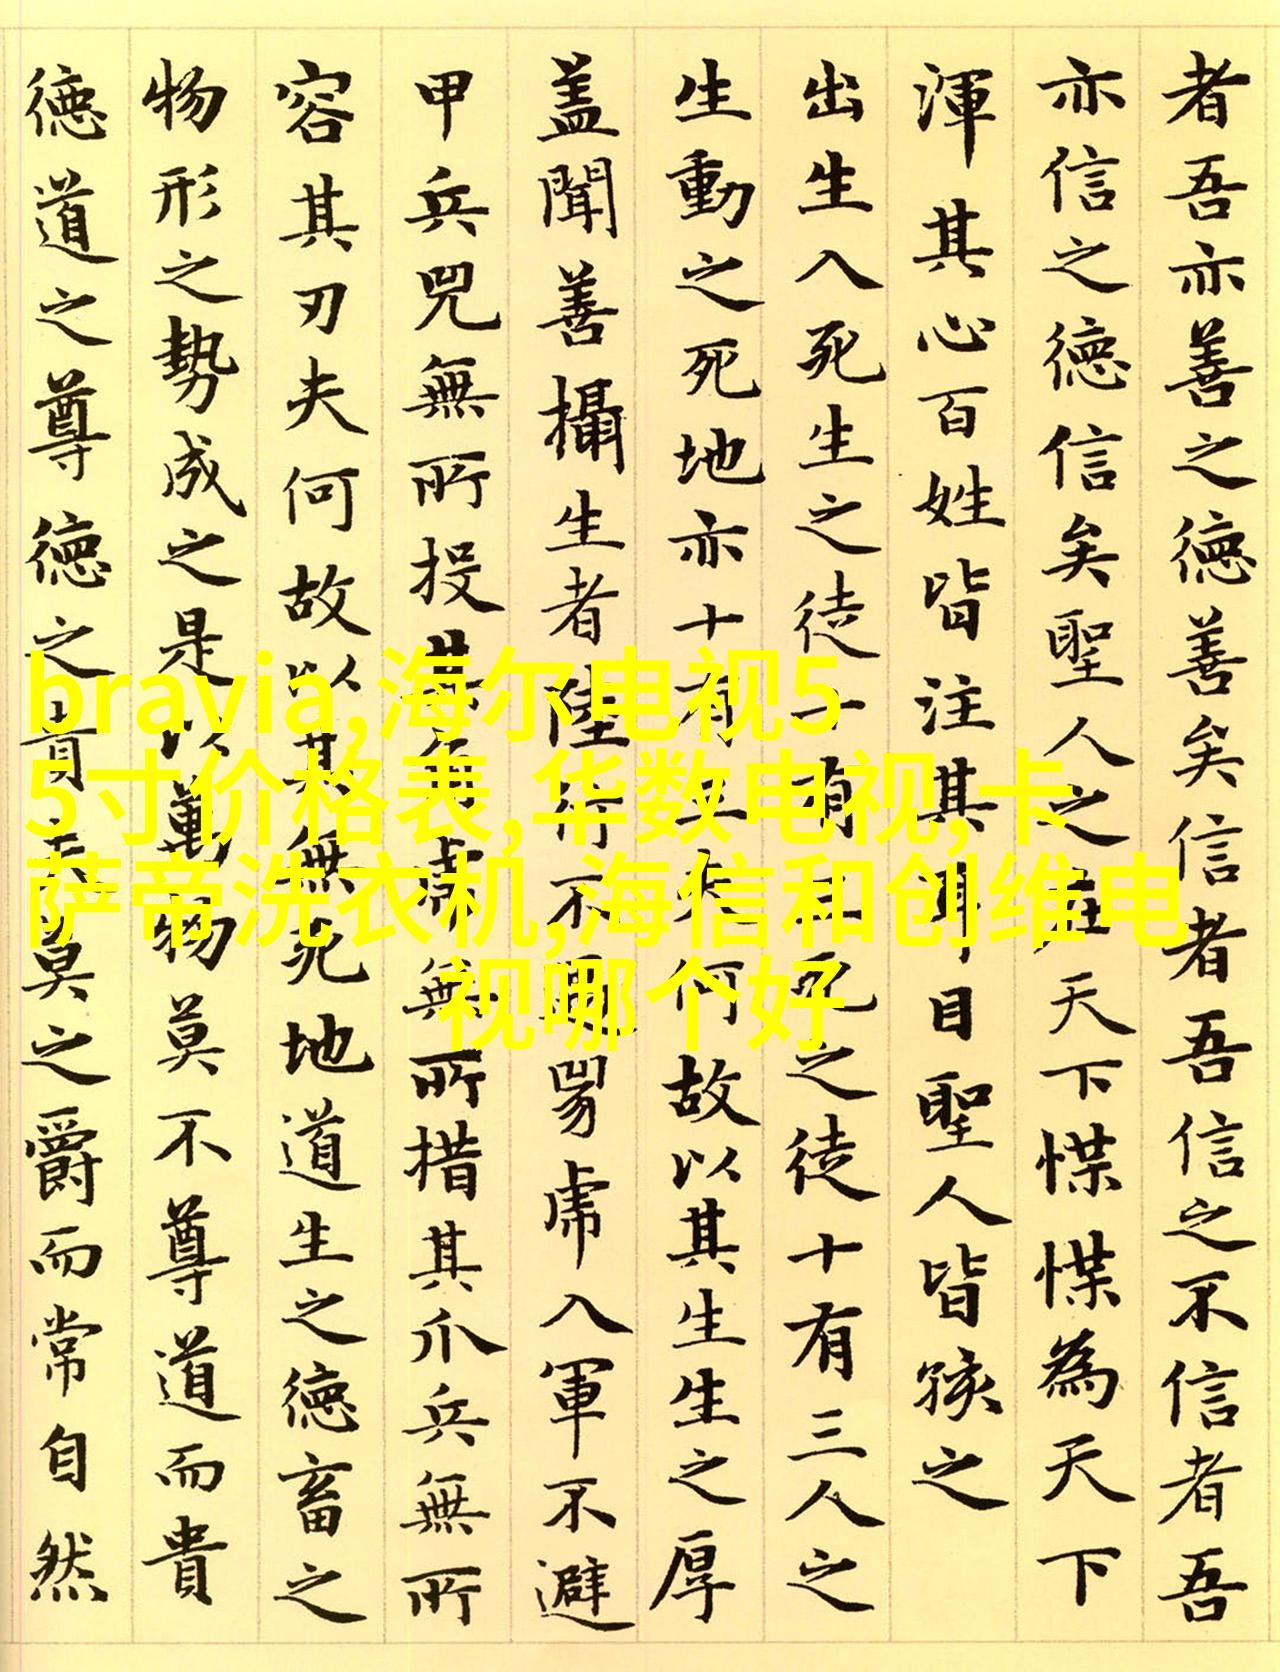 者吾亦善之德善矣信者吾信之不信者吾
亦信之德信矣聖人之在天下惵惵為天下
渾其心百姓皆注其耳目聖人皆孩之
出生入死生之徒十有三死之徒十有三人之
生動之死地亦十有三夫何故以其生生之厚
蓋聞善攝生者陸行不遇兕虎入軍不避
甲兵兕無所投其角虎無所措其爪兵無所
容其刃夫何故以其無死地道生之德畜之
物形之勢成之是以萬物莫不尊道而貴
德道之尊德之貴夫莫之爵而常自然
bravia,海尔电视5
5寸价格表,华数电视,卡
萨帝洗衣机,海信和创维电
视哪个好